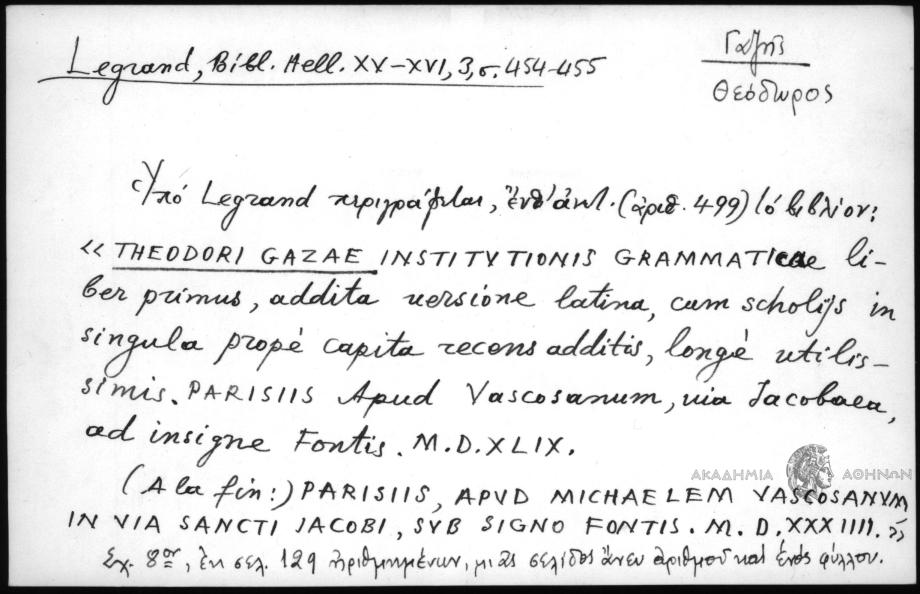 Legrand, Bibl. Hell. XV-XVI, 3, σ. 454-455
Γαζῆς
Θεόδωρος
Ὑπό Legrand περιγράφεται, ἔνθ' ἀνωτ. (ἀριθ. 499) τό βιβλίον:
«THEODORI GAZAE INSTITVTIONIS GRAMMATICae li-
ber primus, addita uersione latina, cum scholijs in
singula propè capita recens additis, longè utilis-
simis. PARISIIS Apud Vascosanum, uia Jacobaea,
ad insigne Fontis. M.D.XLIX.
(A la fin:) PARISIIS, APVD MICHAELEM VASCOSANVM
IN VIA SANCTI JACOBI, SVB SIGNO FONTIS. M.D.XXXIIII.»
Σχ. 8ον, ἐκ σελ. 129 ἠριθμημένων, μιᾶς σελίδος ἄνευ ἀριθμοῦ καί ἑνός φύλλου.
ΑΚΑΔΗΜΙΑ ΑΘΗΝΩΝ